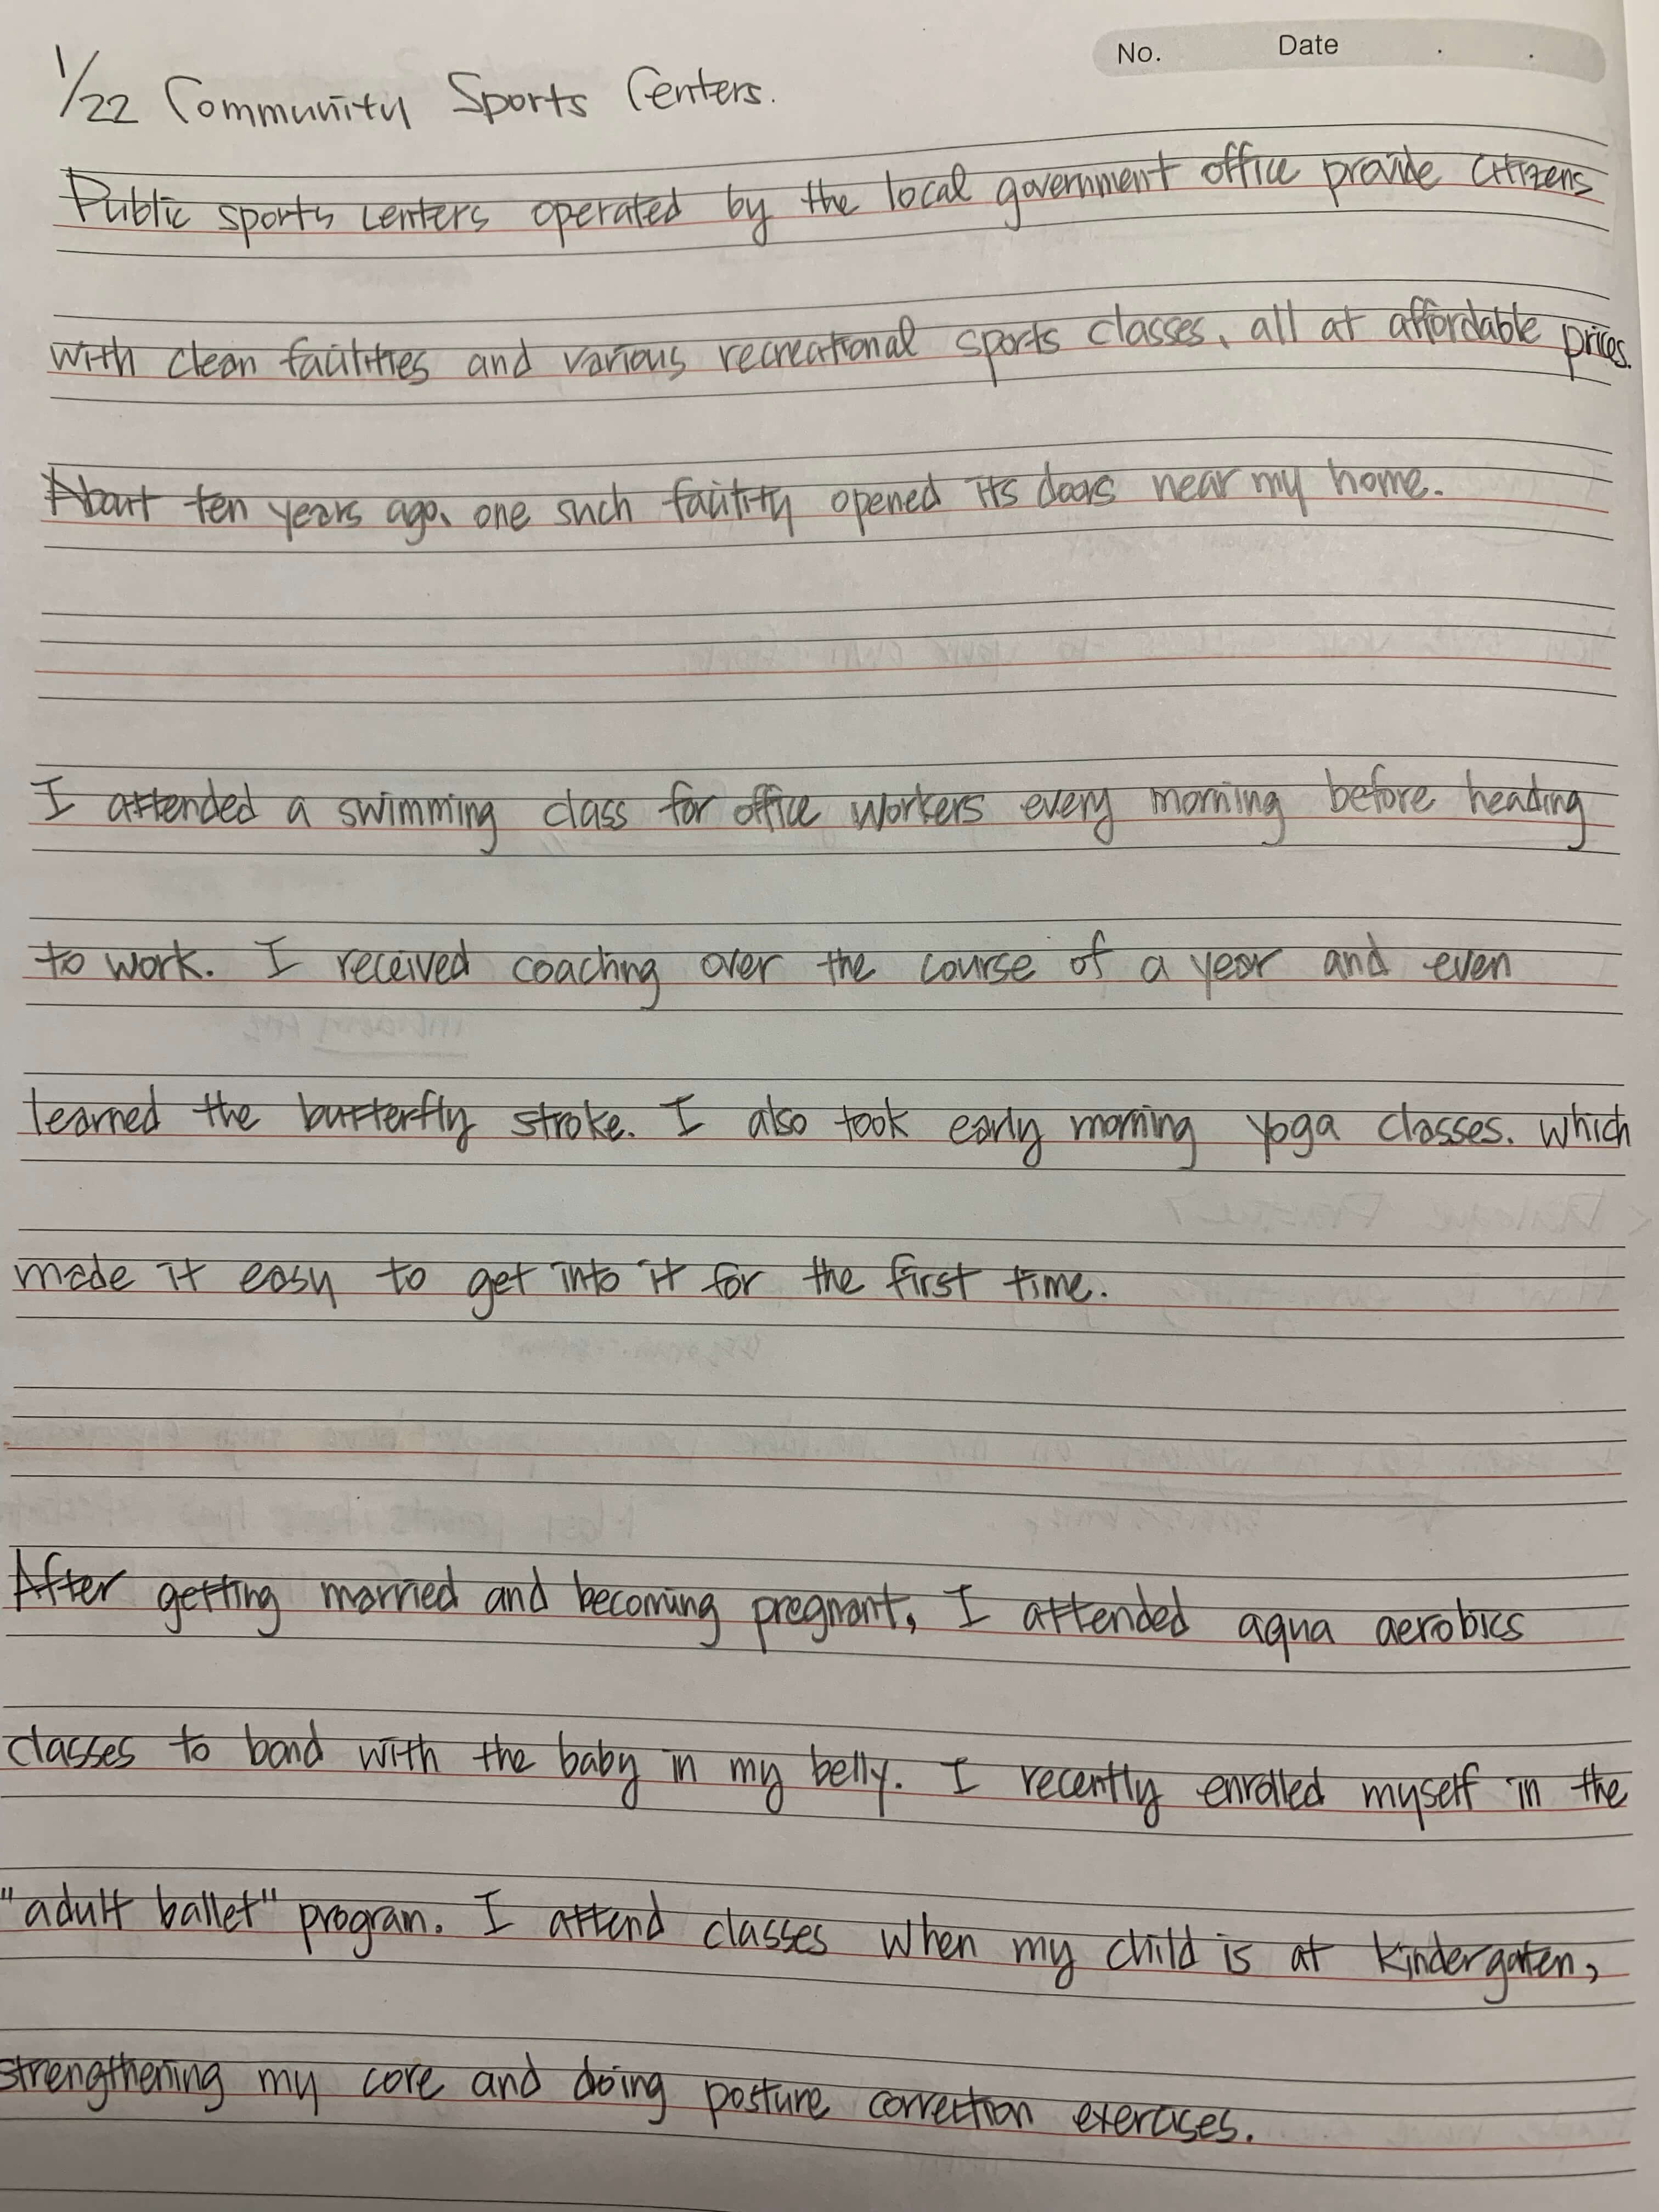 No. Date . .
1/22 Community Sports Centers.
Public sports centers operated by the local government office provide citizens
with clean facilities and various recreational sports classes, all at affordable prices.
About ten years ago, one such facility opened its doors near my home.
I attended a swimming class for office workers every morning before heading
to work. I received coaching over the course of a year and even
learned the butterfly stroke. I also took early morning yoga classes. which
made it easy to get into it for the first time.
After getting married and becoming pregnant, I attended aqua aerobics
classes to bond with the baby in my belly. I recently enrolled myself in the
"adult ballet" program. I attend classes when my child is at kindergarten,
strengthening my core and doing posture correction exercises.